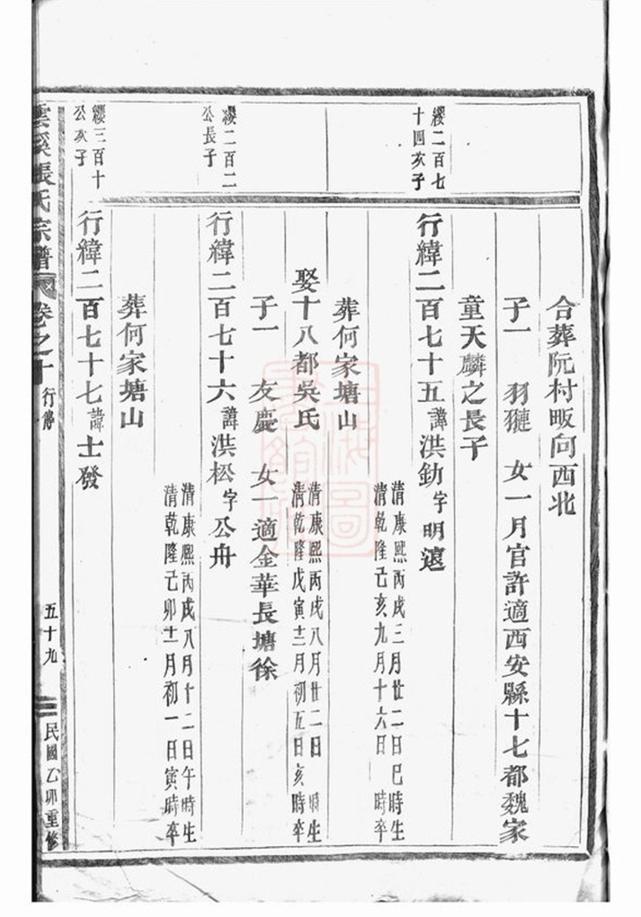 合葬阮村畈向西北
子一 羽𤟹 女一月官許適西安縣十七都魏家
童天麟之長子
纓二百七
十四次子
行緯二百七十五諱洪勛字明遠
清康熙丙戌三月廿二日巳時生
清乾隆己亥九月十六日 時卒
葬何家塘山
娶十八都吳氏
清康熙丙戌八月廿二日 時生
清乾隆戊寅十二月初五日亥時卒
子一 友慶 女一適金華長塘徐
纓二百二
公長子
行緯二百七十六諱洪松字公舟
清康熙丙戌八月十二日午時生
清乾隆己卯十二月初一日寅時卒
葬何家塘山
纓三百十
公次子
行緯二百七十七諱士發
雲溪張氏宗譜 卷之十 行傳 五十九 民國乙卯重修